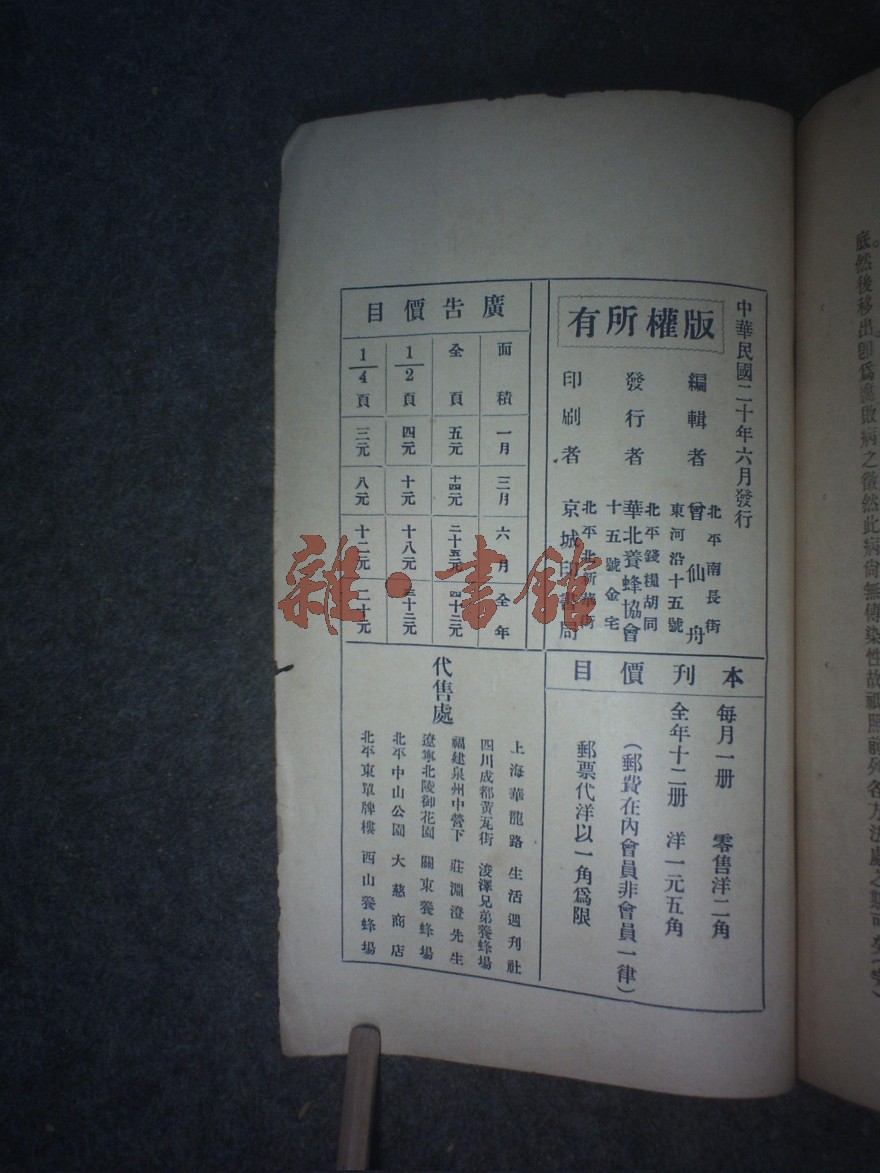 中華民國二十年六月發行
版權所有
編輯者
北平南長街
東河沿十五號
曾仙舟
發行者
北平錢糧胡同
十五號金宅
華北養蜂協會
印刷者
北平北新華街
京城印書局
本刊價目
每月一册 零售洋二角
全年十二册 洋一元五角
(郵費在內會員非會員一律)
郵票代洋以一角爲限
廣告價目
面積 一月 三月 六月 全年
全頁 五元 十四元 二十五元 四十二元
1/2頁 四元 十元 十八元 三十二元
1/4頁 三元 八元 十二元 二十元
代售處
上海華龍路 生活週刊社
四川成都黃瓦街 浚澤兄弟養蜂場
福建泉州中營下 莊淵澄先生
遼寧北陵御花園 關東養蜂場
北平中山公園 大慈商店
北平東單牌樓 西山養蜂場
雜·書館
底然後移出卽爲
敗病之徵然此病尙無傳染性故祇照前列各方法處之